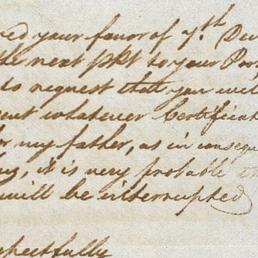 your favor of 7th Dec
the next pkt to your Por
to request that you will
whatever Certificat
for my father, as in conseq
it is very probable th
will be interrupted
pectfully